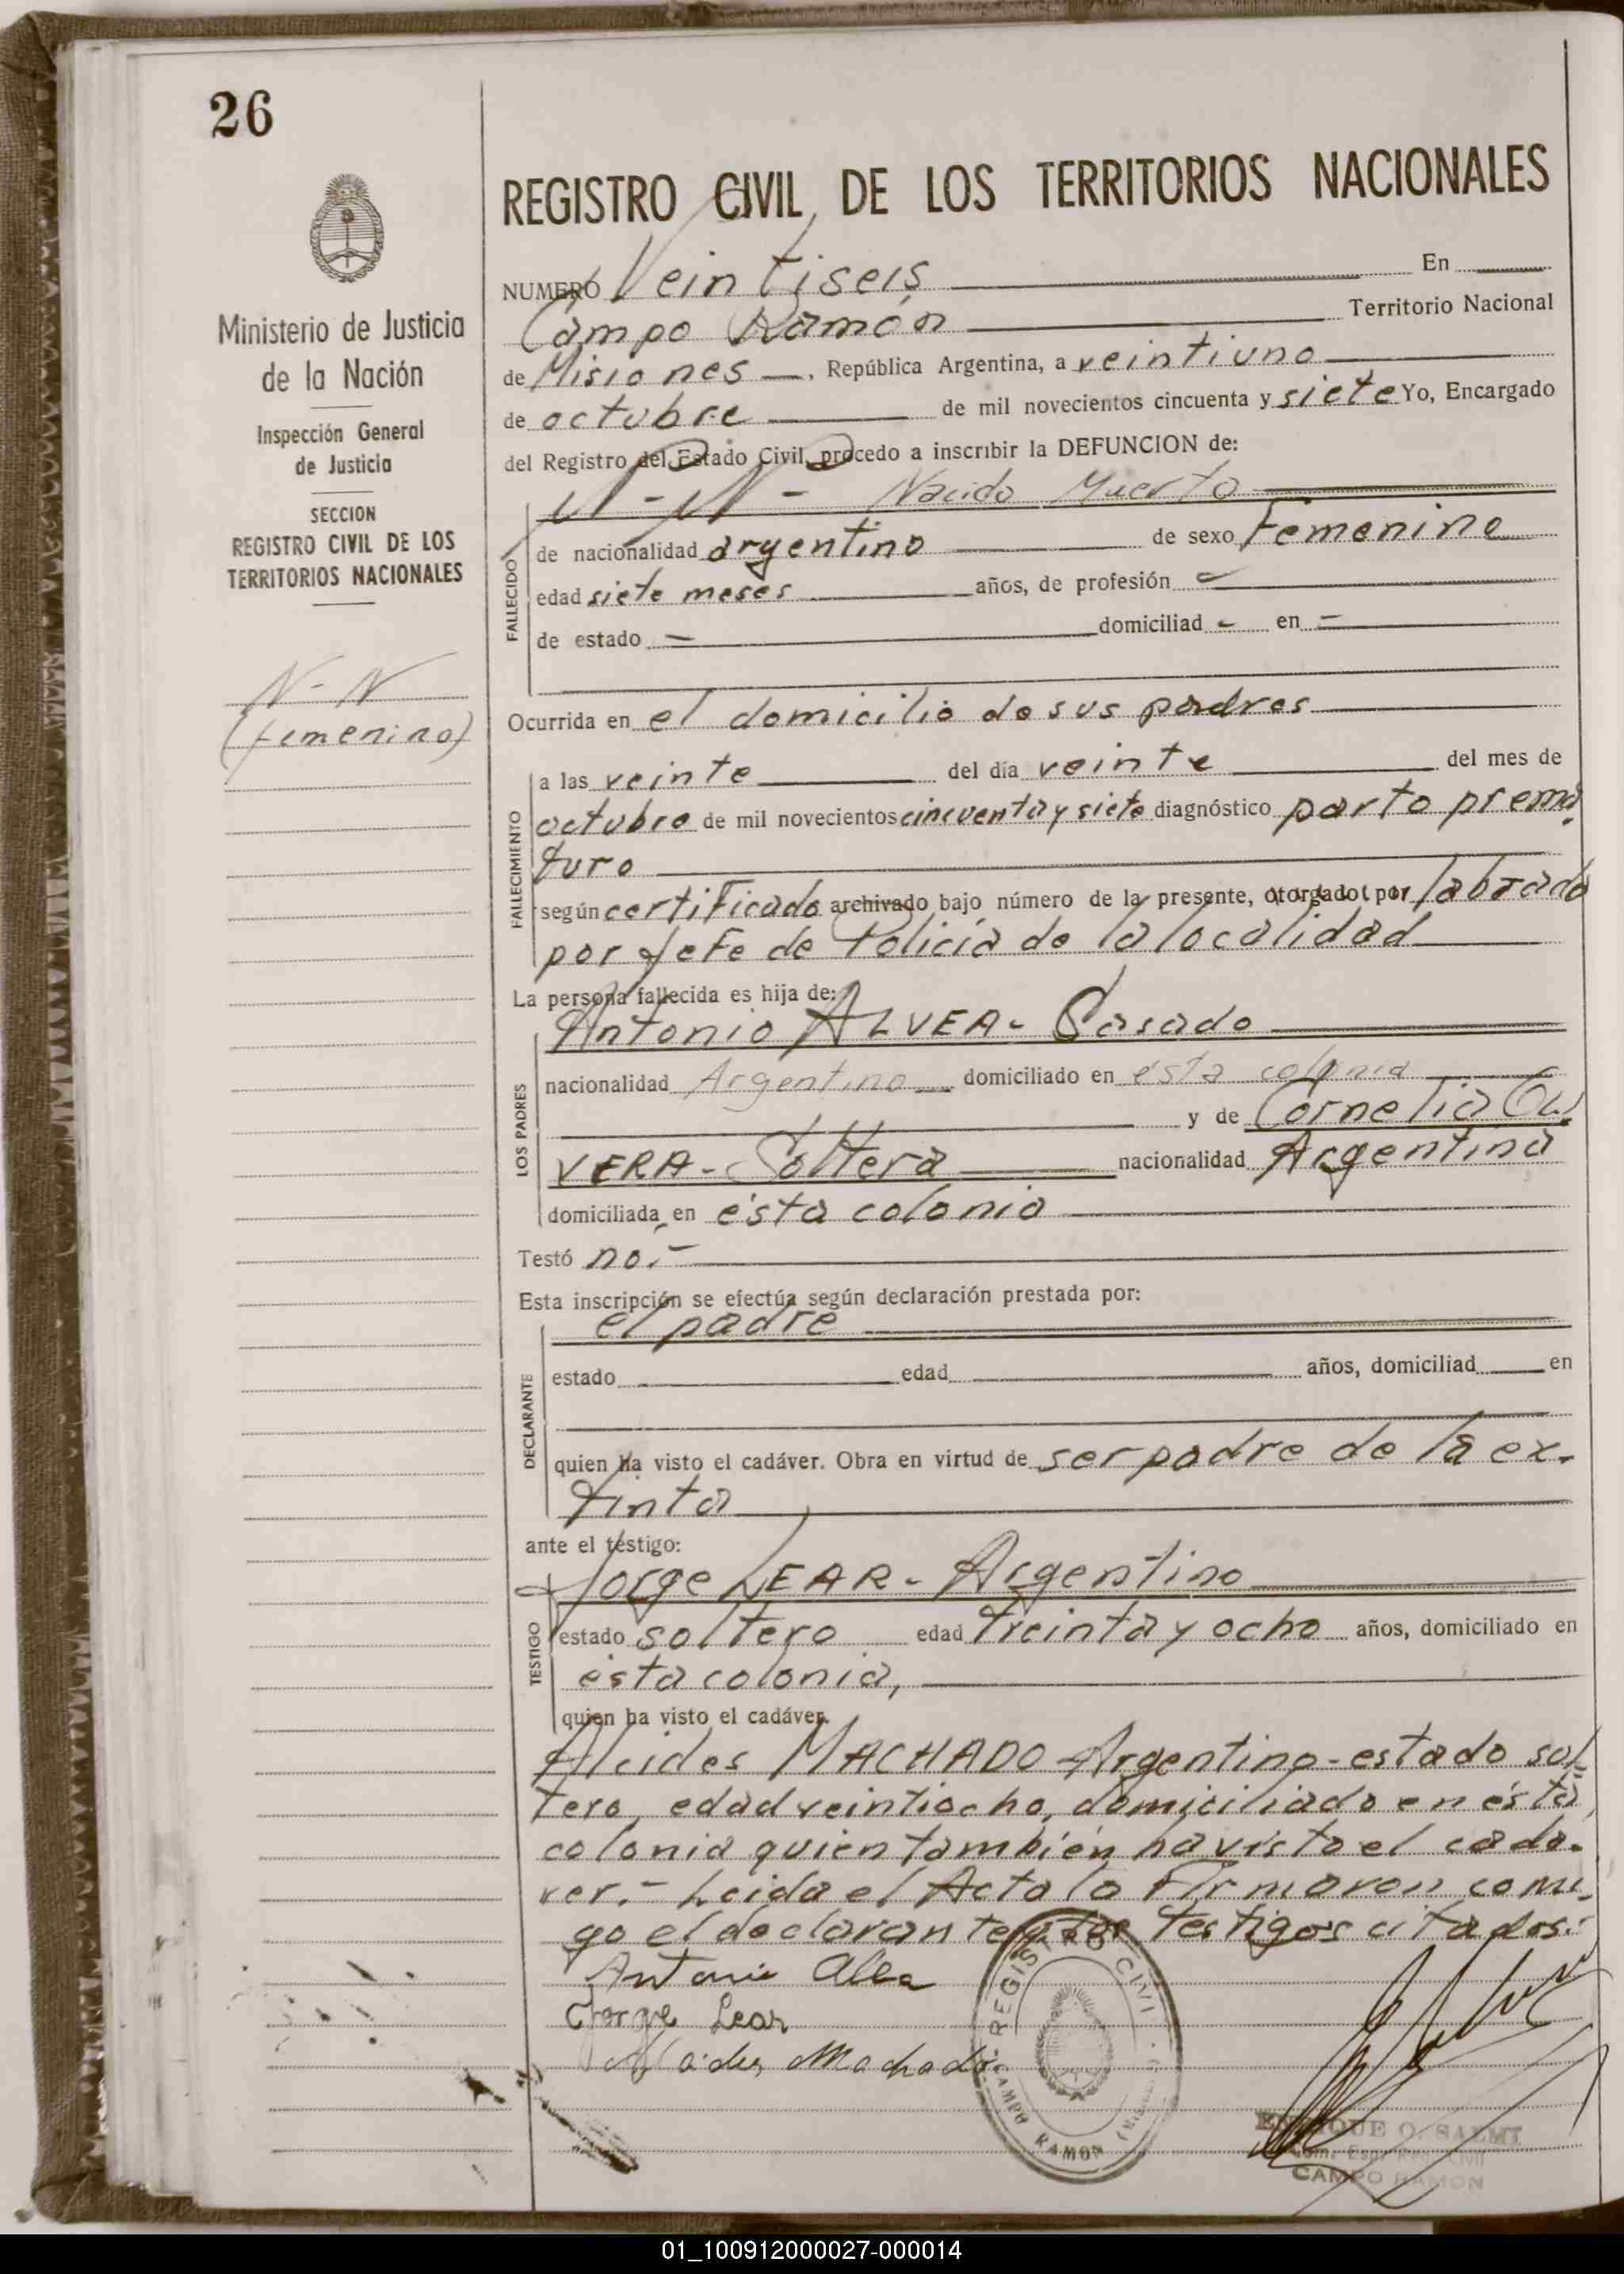 26
Ministerio de Justicia
de la Nación
Inspección General
de Justicia
SECCION
REGISTRO CIVIL DE LOS
TERRITORIOS NACIONALES
N - N
(femenino)
REGISTRO CIVIL DE LOS TERRITORIOS NACIONALES
NUMERO Veintiseis En
Campo Ramón Territorio Nacional
de Misiones —, República Argentina, a veintiuno
de octubre de mil novecientos cincuenta y siete Yo, Encargado
del Registro del Estado Civil, procedo a inscribir la DEFUNCION de:
N - N - Nacido Muerto
FALLECIDO
de nacionalidad argentino de sexo Femenino
edad siete meses años, de profesión —
de estado — domiciliad - en —
Ocurrida en el domicilio de sus padres
FALLECIMIENTO
a las veinte del día veinte del mes de
octubre de mil novecientos cincuenta y siete diagnóstico parto prema
turo
según certificado archivado bajo número de la presente, otorgado por labrado
por Jefe de Policía de la localidad
La persona fallecida es hija de:
LOS PADRES
Antonio ALVEA - Casado
nacionalidad Argentino domiciliado en ésta colonia
y de Cornelia
VERA - Soltera nacionalidad Argentina
domiciliada en ésta colonia
Testó no.-
Esta inscripción se efectúa según declaración prestada por:
DECLARANTE
el padre
estado edad años, domiciliad en
quien ha visto el cadáver. Obra en virtud de ser padre de la ex-
tinta
ante el testigo:
TESTIGO
Jorge LEAR - Argentino
estado soltero edad treinta y ocho años, domiciliado en
ésta colonia,
quien ha visto el cadáver.
Alcides MACHADO - Argentino - estado sol-
tero, edad veintiocho, domiciliado en ésta
colonia quien también ha visto el cadá-
ver.- Leida el Acta la Firmaron conmi-
go el declarante y los testigos citados:
Antonio Alea
Jorge Lear
Alcides Machado
REGISTRO CIVIL
CAMPO RAMON (Misiones)
ENRIQUE O. SALMI
Civil
CAMPO RAMON
01_100912000027-000014